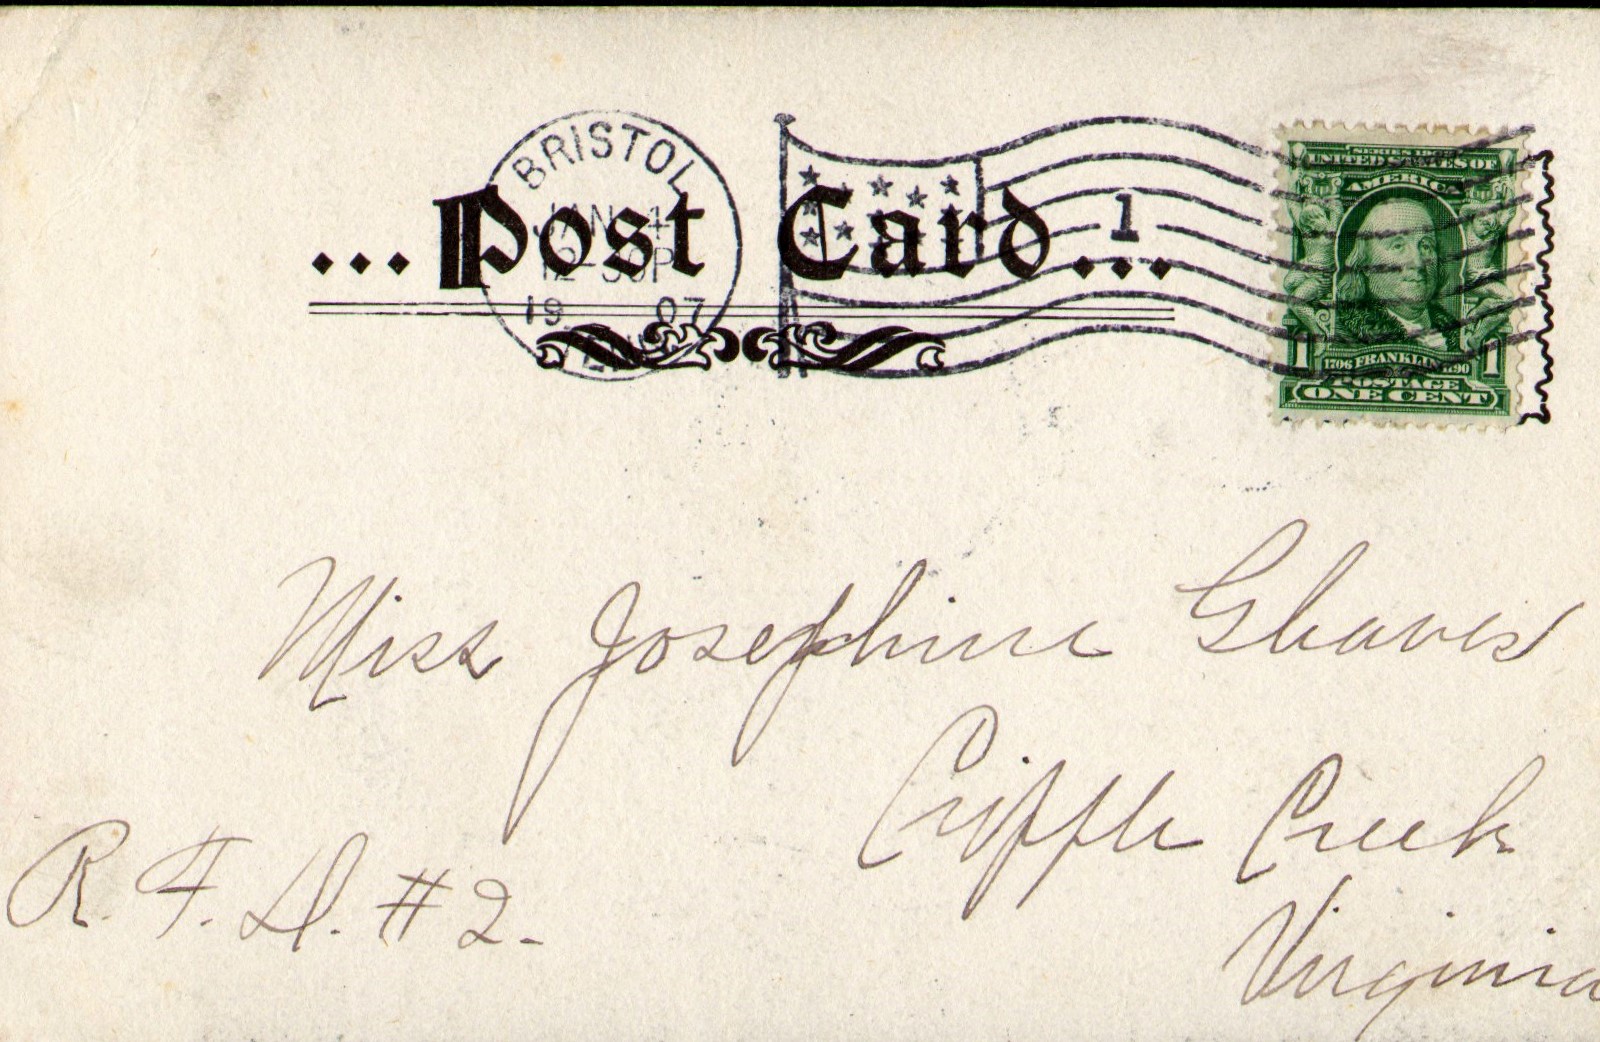 BRISTOL
JAN 4
12-30P
19 07
TENN.
1
...Post Card...
SERIES 1902
UNITED STATES OF
AMERICA
1706 FRANKLIN 1790
1 1
POSTAGE
ONE CENT
Miss Josephine Gleaves
Cripple Creek
Virginia
R. F. D. #2.